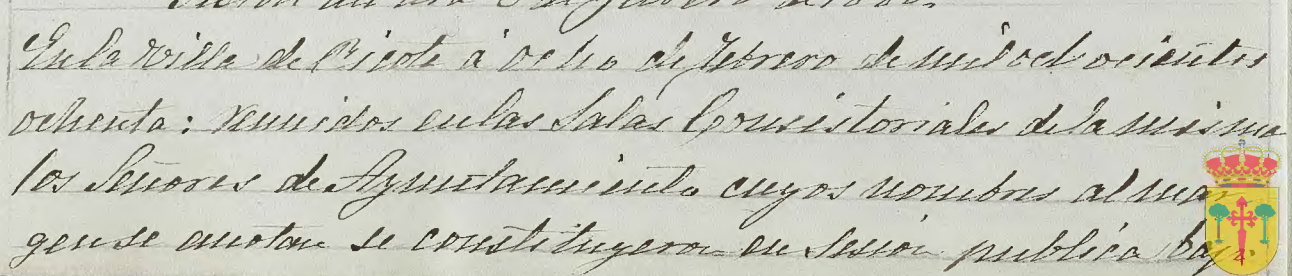 Sesion del dia 8 de Febrero de 1880.
En la Villa de Ricote á ocho de Febrero de mil ochocientos
ochenta: reunidos en las Salas Consistoriales de la misma
los Señores de Ayuntamiento cuyos nombres al mar
gen se anotan se constituyeron en sesion publica bajo